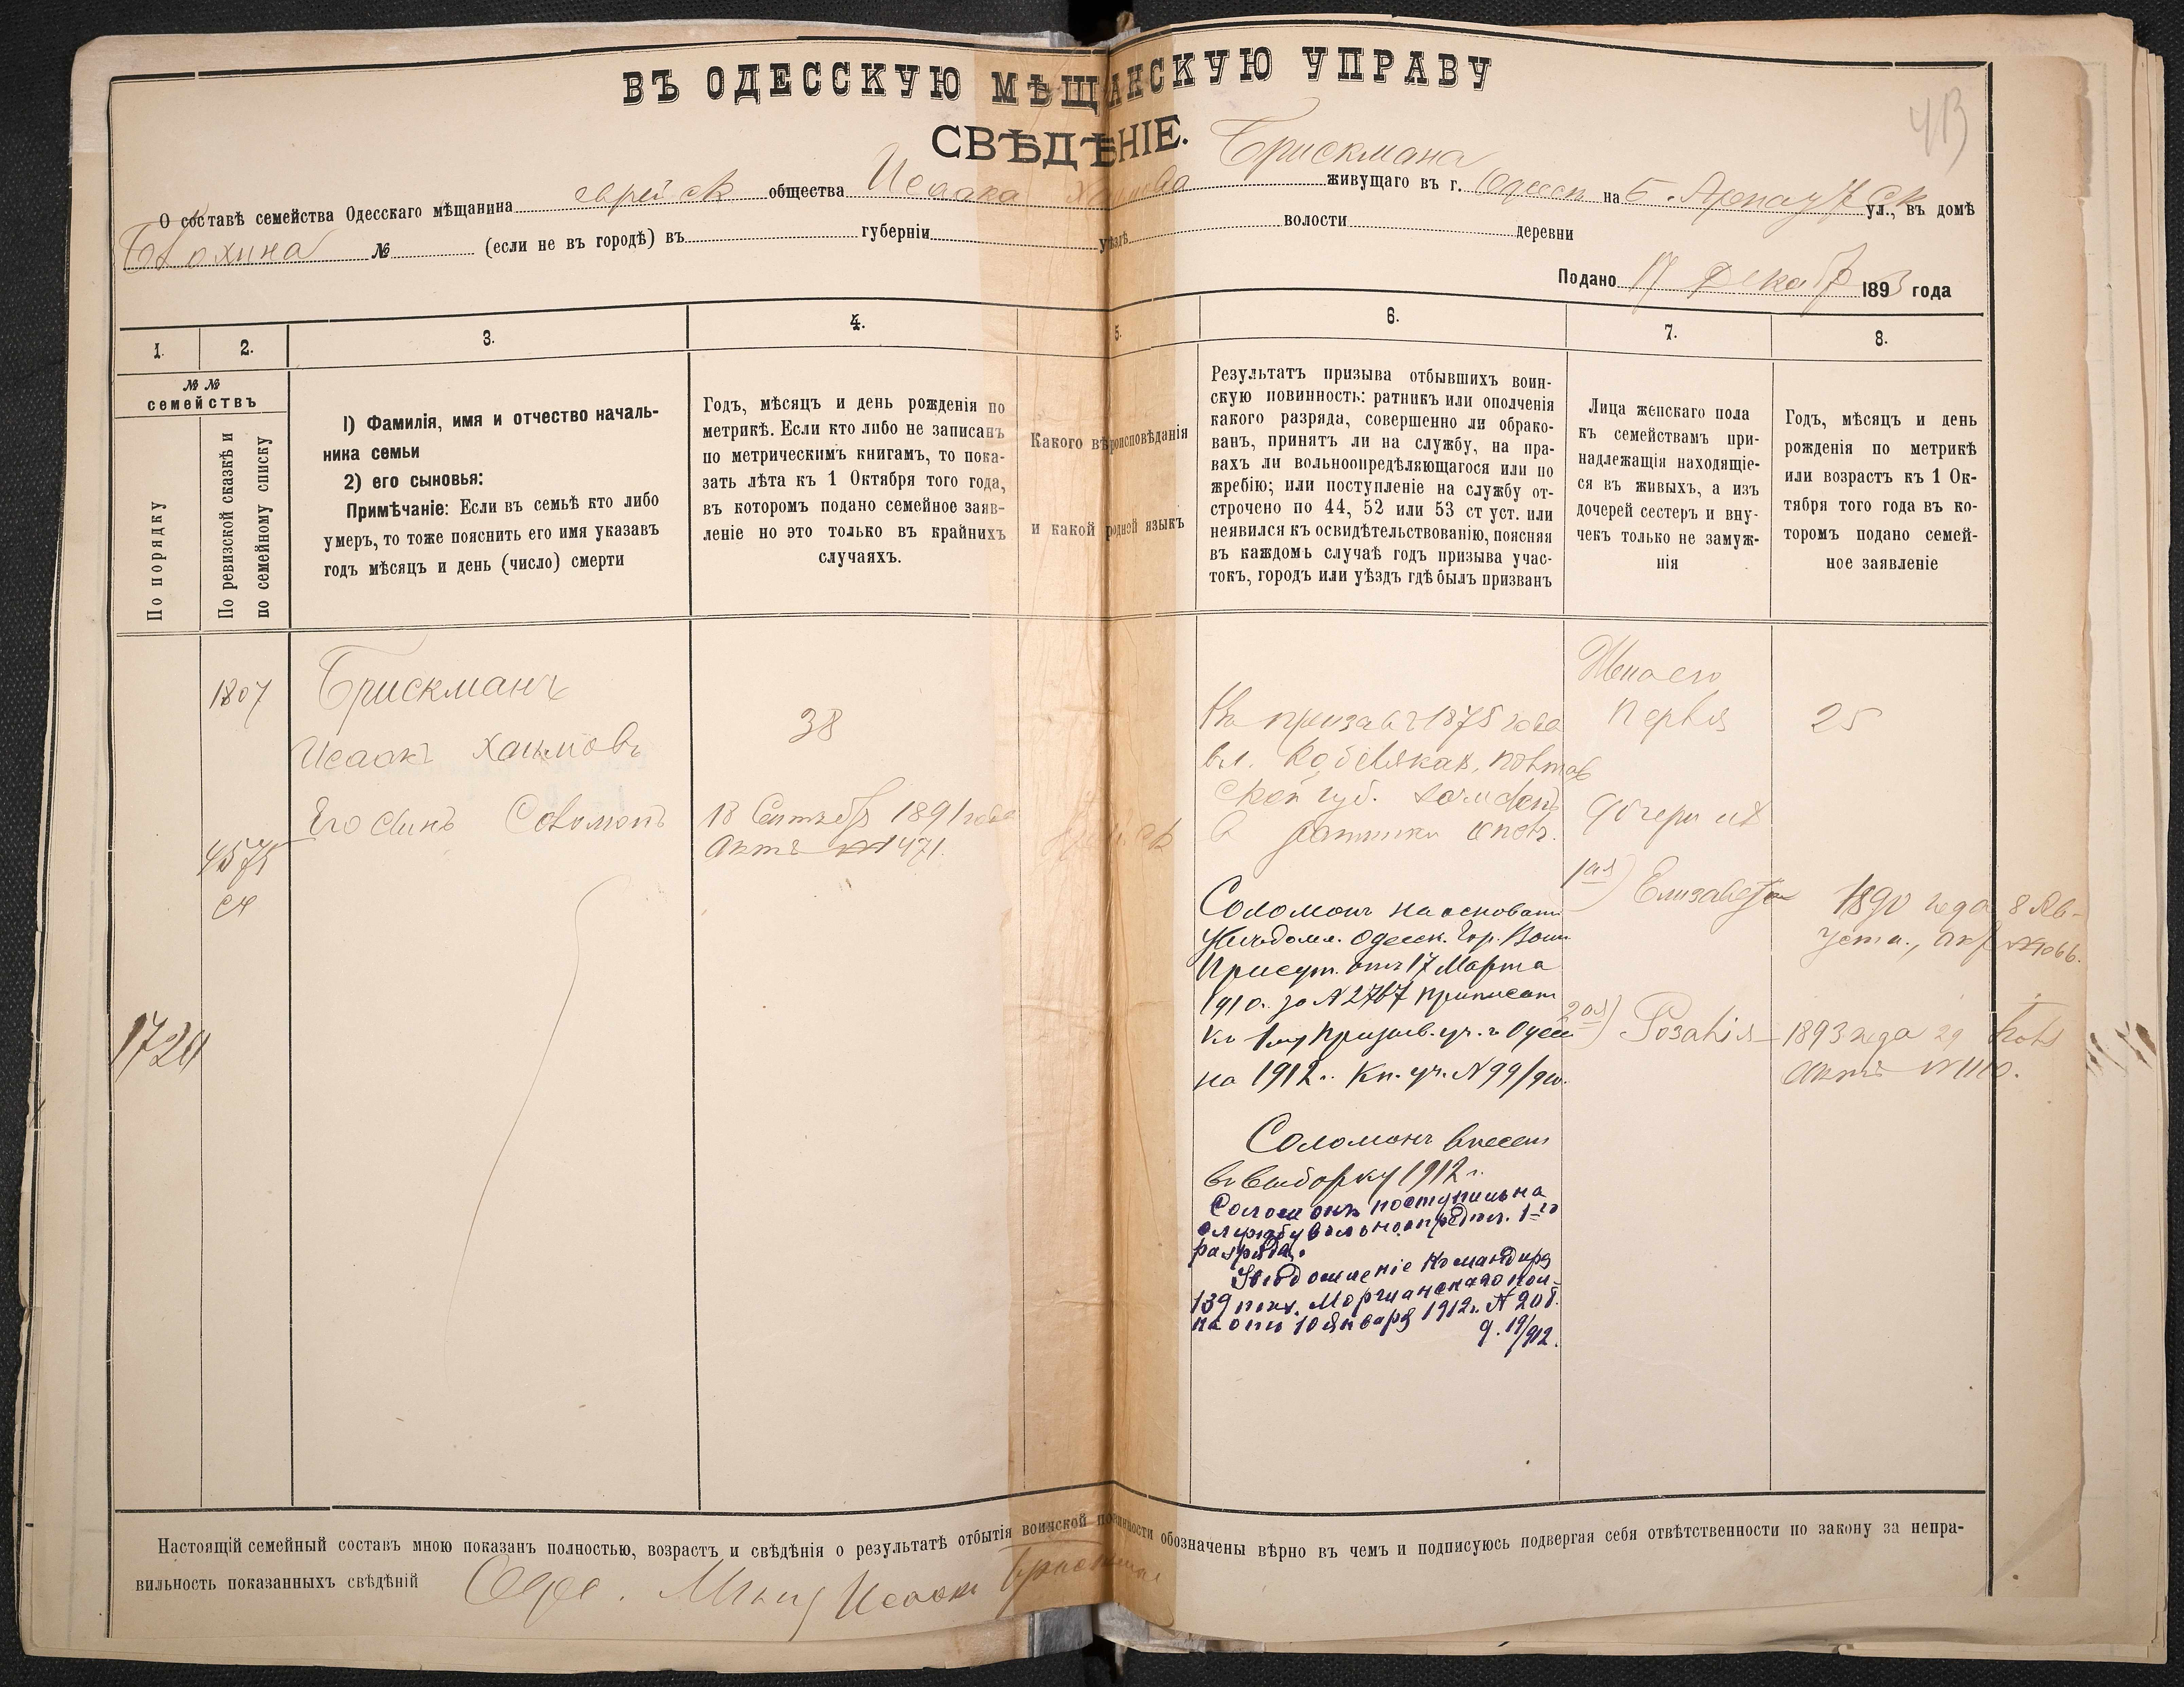 ВЪ ОДЕССКУЮ МѢЩАНСКУЮ УПРАВУ
СВѢДѢНІЕ.
413
О составѣ семейства Одесскаго мѣщанина еврейск общества Исаака Хаимова Брискмана живущаго въ г. Одессѣ на Б. Арнаутск ул., въ домѣ
Блохина № (если не въ городѣ) въ губерніи уѣздѣ волости деревни
Подано 17 Декабр 1893 года
1. 2. 3. 4. 5. 6. 7. 8.
№№
семействъ
По порядку
По ревизской сказкѣ и
по семейному списку
1) Фамилія, имя и отчество началь-
ника семьи
2) его сыновья:
Примѣчаніе: Если въ семьѣ кто либо
умеръ, то тоже пояснить его имя указавъ
годъ мѣсяцъ и день (число) смерти
Годъ, мѣсяцъ и день рожденія по
метрикѣ. Если кто либо не записанъ
по метрическимъ книгамъ, то пока-
зать лѣта къ 1 Октября того года,
въ которомъ подано семейное заяв-
леніе но это только въ крайнихъ
случаяхъ.
Какого вѣроисповѣданія
и какой родной языкъ
Результатъ призыва отбывшихъ воин-
скую повинность: ратникъ или ополченія
какого разряда, совершенно ли обрако-
ванъ, принятъ ли на службу, на пра-
вахъ ли вольноопредѣляющагося или по
жребію; или поступленіе на службу от-
строчено по 44, 52 или 53 ст уст. или
неявился къ освидѣтельствованію, поясняя
въ каждомъ случаѣ годъ призыва учас-
токъ, городъ или уѣздъ гдѣ былъ призванъ
Лица женскаго пола
къ семействамъ при-
надлежащія находящіе-
ся въ живыхъ, а изъ
дочерей сестеръ и вну-
чекъ только не замуж-
нія
Годъ, мѣсяцъ и день
рожденія по метрикѣ
или возрастъ къ 1 Ок-
тября того года въ ко-
торомъ подано семей-
ное заявленіе
1720
1807
4575
Брискманъ
Исаакъ Хаимовъ
Его сынъ Соломонъ
38
18 Сентябр 1891 года
Актъ № 1471.
На призывѣ 1875 года
в г. Кобелякахъ, Полтав
ской губ. зачисленъ
в ратники ополч.
Соломонъ на основан
Увѣдомл. Одесск. Гор. Воин.
Присут. отъ 17 Марта
1910 г. за № 2767 приписан
къ 1му Призыв. уч. г. Одессы
на 1912 г. Кн. уч. № 99/910.
Соломонъ внесен
въ выборку 1912 г.
Соломонъ поступилъ на
службу вольноопредѣл. 1-го
разряда.
Увѣдомленіе Командира
139 пѣх. Моршанскаго пол-
ка отъ 10 Января 1912 г. № 208.
д. 19/912.
Жена его
Перля
дочери ихъ
1ая) Елизавета
2ая) Розалія
25
1890 года 8 Ав-
густа., акт №1066.
1893 года 29
Актъ № 1110.
Настоящій семейный составъ мною показанъ полностью, возрастъ и свѣдѣнія о результатѣ отбытія воинской повинности обозначены вѣрно въ чемъ и подписуюсь подвергая себя отвѣтственности по закону за непра-
вильность показанныхъ свѣдѣній Одес. Мѣщ Исаакъ Брискман